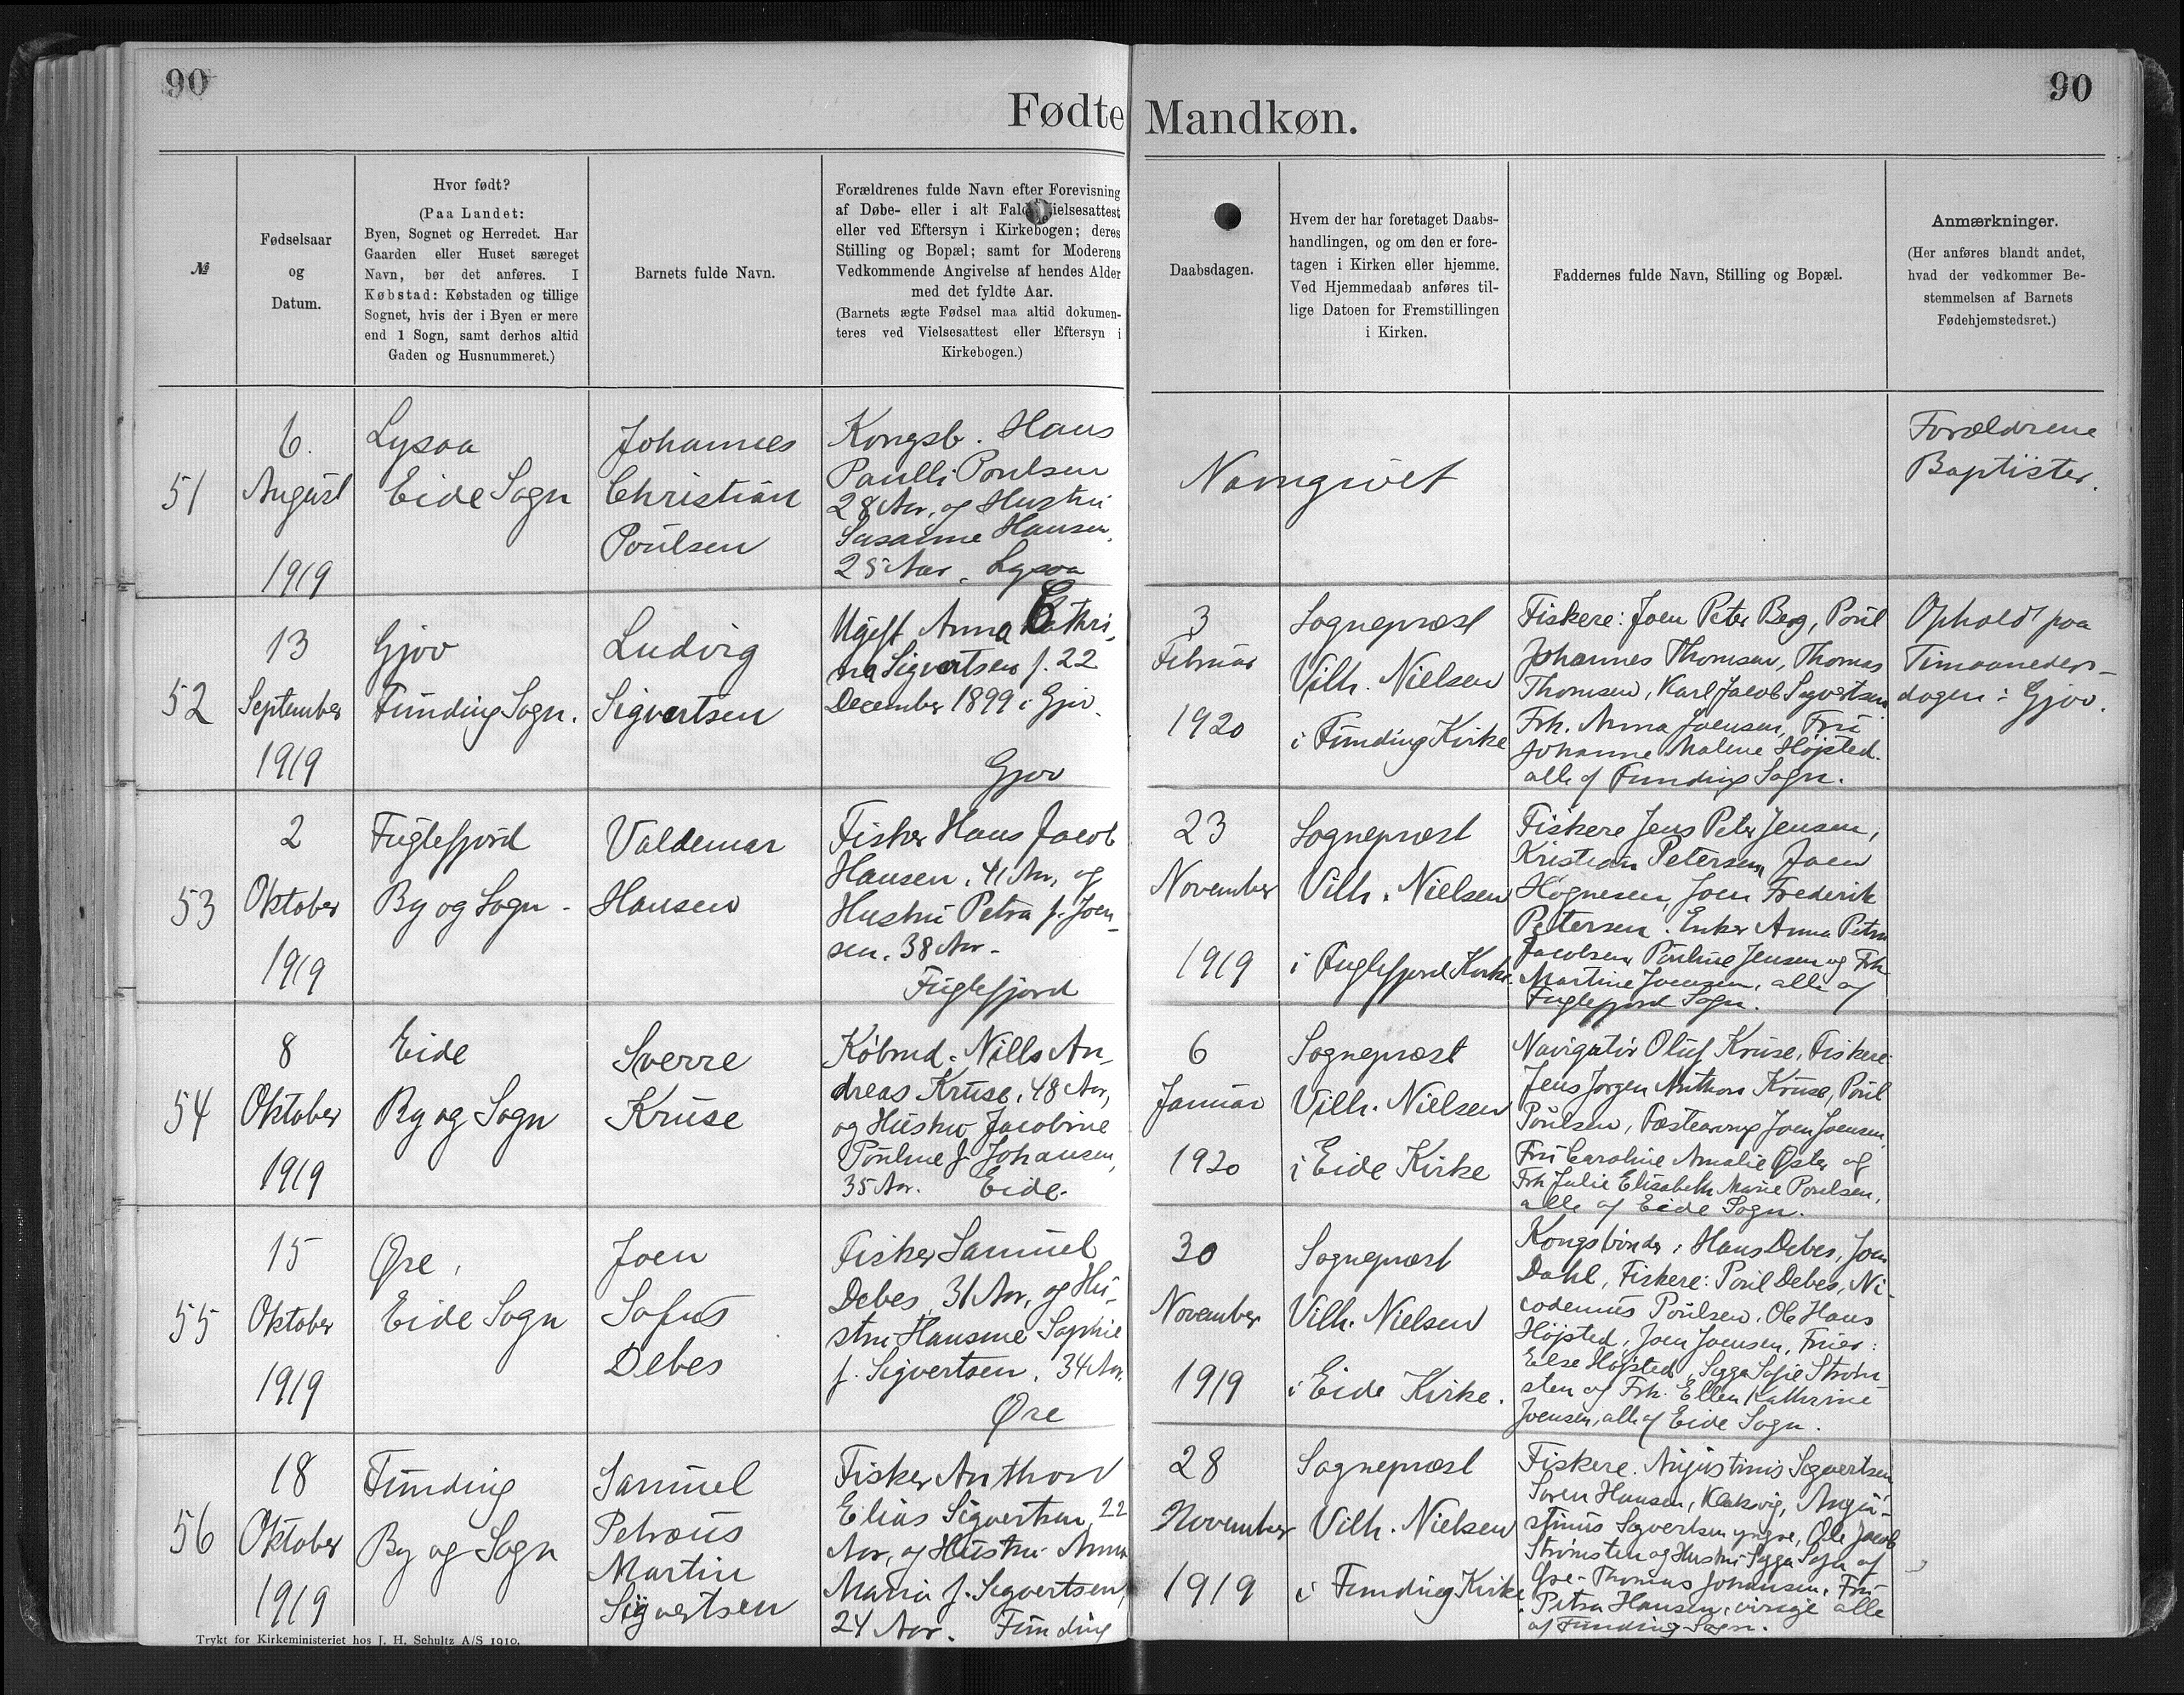 90
90
Fødte Mandkøn.
№
Fødselsaar
og
Datum.
Hvor født?
(Paa Landet:
Byen, Sognet og Herredet. Har
Gaarden eller Huset særeget
Navn, bør det anføres. I
Købstad: Købstaden og tillige
Sognet, hvis der i Byen er mere
end 1 Sogn, samt derhos altid
Gaden og Husnummeret.)
Barnets fulde Navn.
Forældrenes fulde Navn efter Forevisning
af Døbe- eller i alt Fald Vielsesattest
eller ved Eftersyn i Kirkebogen; deres
Stilling og Bopæl; samt for Moderens
Vedkommende Angivelse af hendes Alder
med det fyldte Aar.
(Barnets ægte Fødsel maa altid dokumen-
teres ved Vielsesattest eller Eftersyn i
Kirkebogen.)
Daabsdagen.
Hvem der har foretaget Daabs-
handlingen, og om den er fore-
tagen i Kirken eller hjemme.
Ved Hjemmedaab anføres til-
lige Datoen for Fremstillingen
i Kirken.
Faddernes fulde Navn, Stilling og Bopæl.
Anmærkninger.
(Her anføres blandt andet,
hvad der vedkommer Be-
stemmelsen af Barnets
Fødehjemstedsret.)
51
6.
August
1919
Lysaa
Eide Sogn
Johannes
Christian
Poulsen
Kongsb. Hans
Paulli Poulsen
28 Aar, og Hustru
Susanne Hansen,
25 Aar. Lysaa
Navngivet
Forældrene
Baptister.
52
13
September
1919
Gjov
Funding Sogn.
Ludvig
Sigvertsen
Ugift Anna Cathri-
na Sigvertsen f. 22
December 1899 i Gjov.
Gjov
3
Februar
1920
Sognepræst
Vilh. Nielsen
i Funding Kirke
Fiskere: Joen Peter Berg, Poul
Johannes Thomsen, Thomas
Thomsen, Karl Jacob Sigvertsen
Frk. Anna Joensen, Fru
Johanne Malene Højsted.
alle af Fundings Sogn.
Ophold paa
Timaaneders-
dagen: Gjov.
53
2
Oktober
1919
Fuglefjord
By og Sogn -
Valdemar
Hansen
Fisker Hans Jacob
Hansen, 41 Aar, og
Hustru Petra f. Joen-
sen, 38 Aar -
Fuglefjord
23
November
1919
Sognepræst
Vilh. Nielsen
i Fuglefjord Kirke.
Fiskere Jens Peter Jensen,
Kristian Petersen, Joen
Høgnesen, Joen Frederik
Pettersen. Enker Anna Petra
Jacobsen, Pouline Jensen og Frk
Martine Joensen, alle af
Fuglefjord Sogn.
54
8
Oktober
1919
Eide
By og Sogn
Sverre
Kruse
Købmd. Nills An-
dreas Kruse, 48 Aar,
og Hustru Jacobine
Pouline f. Johansen,
35 Aar. Eide.
6
Januar
1920
Sognepræst
Vilh. Nielsen
i Eide Kirke
Navigatør Oluf Kruse, Fiskere
Jens Jorgen Anthon Kruse, Poul
Poulsen, Joen Joensen,
Fru Caroline Amalie Øster og
Frk Julie Elisabeth Marie Poulsen,
alle af Eide Sogn.
55
15
Oktober
1919
Øre,
Eide Sogn
Joen
Sofus
Debes
Fisker Samuel
Debes, 31 Aar, og Hu-
stru Hansine Sophie
f. Sigvertsen, 34 Aar.
Øre
30
November
1919
Sognepræst
Vilh. Nielsen
i Eide Kirke.
Kongsbønder: Hans Debes, Joen
Dahl, Fiskere: Poul Debes, Ni-
codemus Poulsen, Ole Hans
Højsted, Joen Joensen, Fruer:
Else Højsted, Sigga Sofie Strøm-
sten og Frk. Ellen Kathrine
Joensen, alle af Eide Sogn.
56
18
Oktober
1919
Funding
By og Sogn
Samuel
Petræus
Martin
Sigvertsen
Fisker Anthon
Elias Sigvertsen, 22
Aar, og Hustru Anna
Maria f. Sigvertsen,
24 Aar. Funding
28
November
1919
Sognepræst
Vilh. Nielsen
i Funding Kirke
Fiskere. Augustinus Sigvertsen
Søren Hansen, Klaksvig, Augu-
stinus Sigvertsen yngre, Ole Jacob
Strømsten og Hustru Sigga Sofie af
Øre - Thomas Johansen. Fru
Petra Hansen, øvrige alle
af Funding Sogn.
Trykt for Kirkeministeriet hos J. H. Schultz A/S 1910.